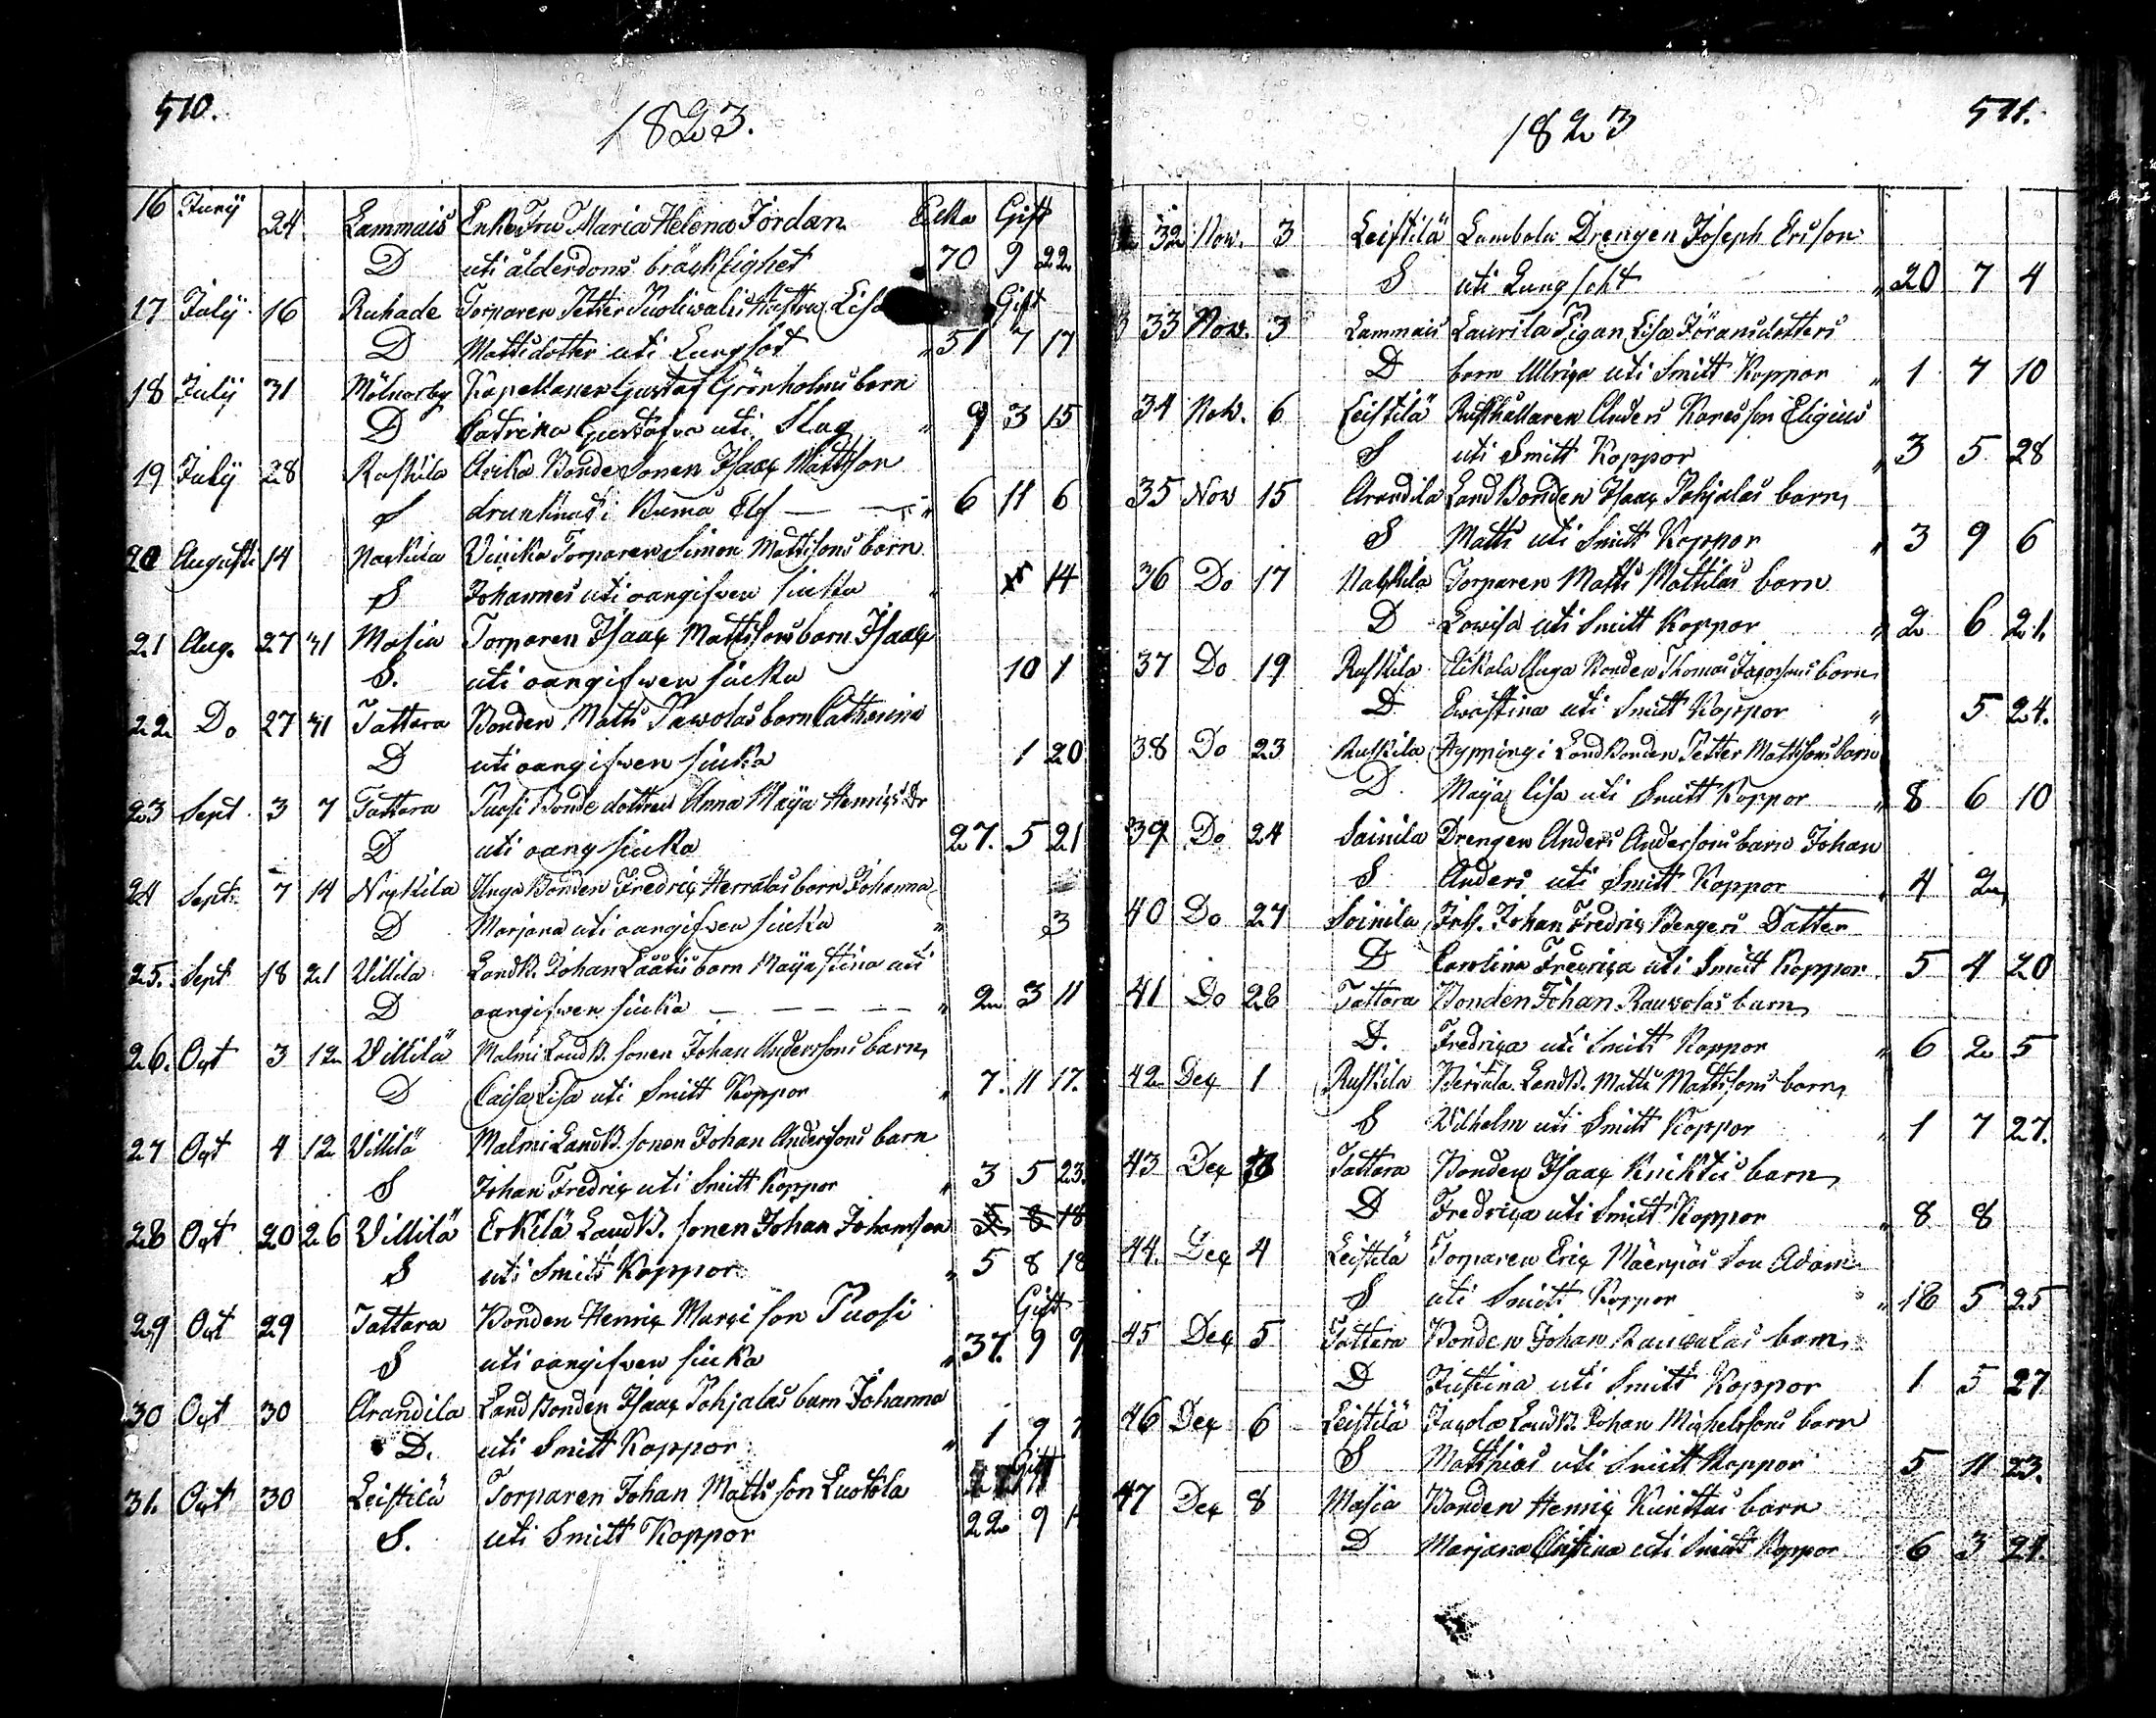 510.
1823.
16 Junij 24. Lammais Enke Fru Maria Helena Jordan Enka Gift
D uti ålderdoms bräcklighet 70 9 22
17 Julij 16 Ruhade Torparen Petter Hustru Lisa Gift
D Mattsdotter uti Lungsot " 51 7 17
18 Julij 31 Mölnarby Kapellanen Gustaf Grönholms barn
D Catrina Gustafva uti Slag " 9 3 15
19 Julij 28 Raskila Bonde Sonen Isaac Mattsson
S drunknat i Kumå Elf — — " 6 11 6
20 Augusti 14 Naskila Torparen Simon Mattssons barn
S Johannes uti oangifwen siuka " 14
21 Aug. 27 31 Masia Torparen Isaac Mattssons barn Isaac
S. uti oangifwen siuka 10 1
22 Do 27 31 Tattara Bonden Matts Pawolas barn Catherina
D uti oangifwen siuka 1 20
23 Sept. 3 7 Tattara Puosi Bonde dottren Anna Maija Henrics Dr
D uti oang siuka 27. 5 21
24 Sept. 7 14 Unga Bonden Fredric Herralas barn Johanna
D Marjana uti oangifwen siuka " 3
25. Sept 18 21 Villila LandB. Johan Läätis barn Maija Stina uti
D oangifwen siuka — — — — " 2 3 11
26. Oct 3 12 Villilä Malmi LandB. sonen Johan Anderssons barn
D Caisa Lisa uti Smitt Koppor " 7. 11 17.
27 Oct 4 12 Villilä Malmi LandB. sonen Johan Anderssons barn
S Johan Fredric uti Smitt Koppor " 3 5 23.
28 Oct 20 26 Villilä Erkilä LandB. sonen Johan Johansson 5 8 18
S uti Smitt Koppor " 5 8 18
29 Oct 29 Tattara Bonden Henric Marcisson Puosi Gift
S uti oangifwen siuka " 37. 9 9
30 Oct 30 Arandila LandBonden Isaac Pohjalas barn Johanna
D. uti Smitt Koppor " 1 9
31. Oct 30 Leistilä Torparen Johan Mattsson Luotola Gift
S. uti Smitt Koppor 22 9
1823
511.
32 Nov. 3 Leistilä Lambola Drengen Joseph Ersson
S uti Lungsoht " 20 7 4
33 Nov. 3 Lammais Laurila Pigan Lisa Jöransdotters
D barn Ullrica uti Smitt Koppor " 1 7 10
34 Nov. 6 Leistilä Rusthållaren Anders son Eligius
S uti Smitt Koppor " 3 5 28
35 Nov 15 Arandila LandBonden Isaac Pohjalas barn
S Matts uti Smitt Koppor " 3 9 6
36 Do 17 Naskila Torparen Matts Mattilas barn
D Lowisa uti Smitt Koppor " 2 6 21.
37 Do 19 Raskila Unga Bonden Thomas Jacobsons barn
D Ewastina uti Smitt Koppor " 5 24.
38 Do 23 Raskila Hyppingi LandBonden Petter Mattssons barn
D. Maija Lisa uti Smitt Koppor " 8 6 10
39 Do 24 Soinila Drengen Anders Anderssons barn Johan
S Anders uti Smitt Koppor " 4 2
40 Do 27 Soinila Johan Fredric Bergers Datter
D Carolina Fredrica uti Smitt Koppor 5 4 20
41 Do 28 Tattara Bonden Johan Rauwolas barn
D. Fredrica uti Smitt Koppor " 6 2 5
42 Dec 1 Raskila LandB. Matts Mattssons barn
S Wilhelm uti Smitt Koppor " 1 7 27.
43 Dec Tattara Bonden Isaac barn
D Fredrica uti Smitt Koppor " 8 8
44. Dec 4 Leistilä Torparen Eric Mäenpäs Son Adam
S uti Smitt Koppor " 18 5 25
45 Dec 5 Tattara Bonden Johan Rauwalas barn
D Justina uti Smitt Koppor 1 5 27
46 Dec 6 Leistilä LandB. Johan Michelssons barn
S Matthias uti Smitt Koppor 5 11 23.
47 Dec 8 Masia Bonden Henric barn
D Marjana Christina uti Smitt Koppor 6 3 21.